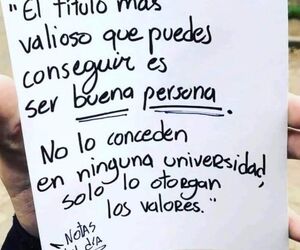 "El título más
valioso que puedes
conseguir es
ser buena persona.
No lo conceden
en ninguna universidad,
solo lo otorgan
los valores."
NOTAS